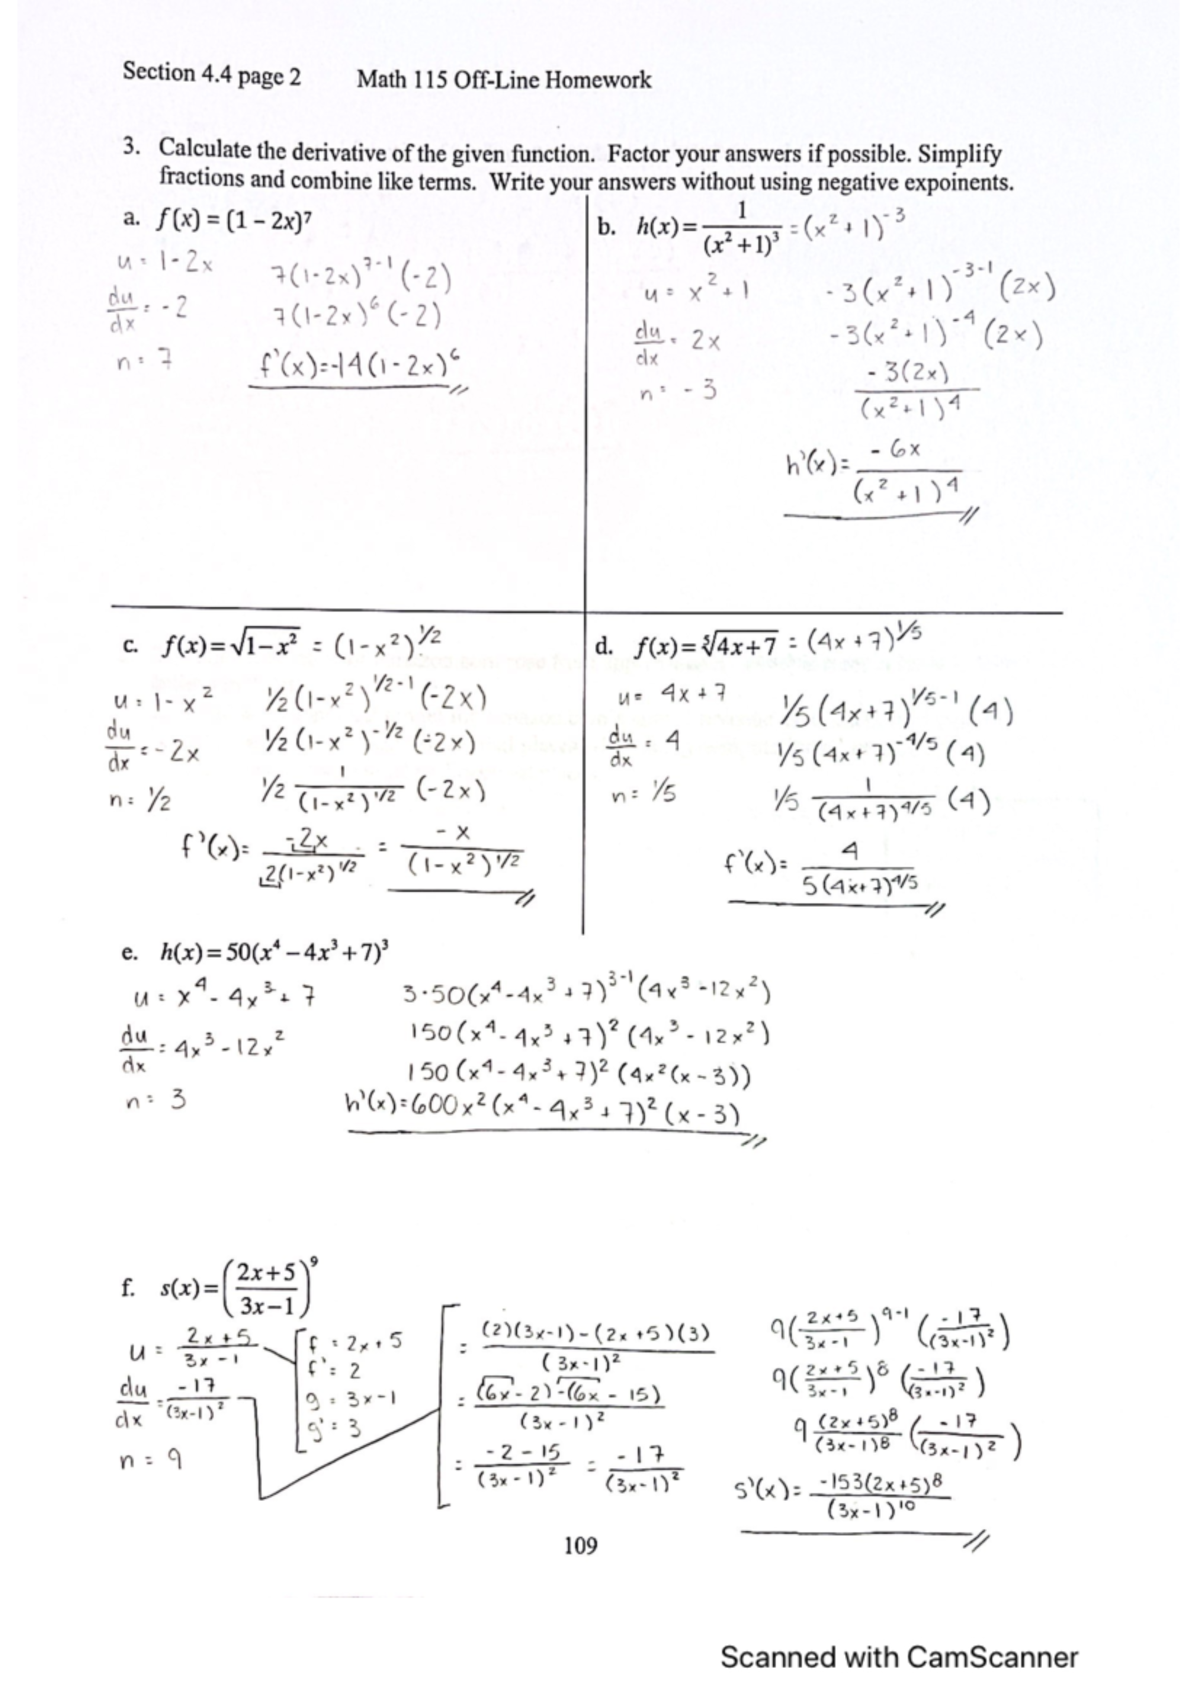 Section 4.4 page 2 Math 115 Off-Line Homework
3. Calculate the derivative of the given function. Factor your answers if possible. Simplify
fractions and combine like terms. Write your answers without using negative expoinents.
a. f(x) = (1 – 2x)⁷
u = 1-2x
du/dx = -2
n = 7
7(1-2x)⁷⁻¹(-2)
7(1-2x)⁶(-2)
f'(x)=-14(1-2x)⁶
b. h(x) = 1/(x²+1)³ = (x²+1)⁻³
u = x²+1
du/dx = 2x
n = -3
-3(x²+1)⁻³⁻¹(2x)
-3(x²+1)⁻⁴(2x)
-3(2x)/(x²+1)⁴
h'(x)= -6x/(x²+1)⁴
c. f(x)=√(1–x²) = (1-x²)^½
u = 1-x²
du/dx = -2x
n = ½
½(1-x²)^(½-1)(-2x)
½(1-x²)^(-½)(-2x)
½ 1/(1-x²)^½ (-2x)
f'(x)= -2x/2(1-x²)^½ = -x/(1-x²)^½
d. f(x)=⁵√(4x+7) = (4x+7)^⅕
u = 4x+7
du/dx = 4
n = ⅕
⅕(4x+7)^(⅕-1)(4)
⅕(4x+7)^(-4/5)(4)
⅕ 1/(4x+7)^(4/5) (4)
f'(x)= 4/5(4x+7)^(4/5)
e. h(x)=50(x⁴–4x³+7)³
u = x⁴-4x³+7
du/dx = 4x³-12x²
n = 3
3·50(x⁴-4x³+7)³⁻¹(4x³-12x²)
150(x⁴-4x³+7)²(4x³-12x²)
150(x⁴-4x³+7)²(4x²(x-3))
h'(x)=600x²(x⁴-4x³+7)²(x-3)
f. s(x)=((2x+5)/(3x–1))⁹
u = (2x+5)/(3x-1)
du/dx = -17/(3x-1)²
n = 9
f = 2x+5
f' = 2
g = 3x-1
g' = 3
= ((2)(3x-1)-(2x+5)(3))/(3x-1)²
= ((6x-2)-(6x-15))/(3x-1)²
= (-2-15)/(3x-1)² = -17/(3x-1)²
9((2x+5)/(3x-1))⁹⁻¹(-17/(3x-1)²)
9((2x+5)/(3x-1))⁸(-17/(3x-1)²)
9 (2x+5)⁸/(3x-1)⁸ (-17/(3x-1)²)
s'(x)= -153(2x+5)⁸/(3x-1)¹⁰
109
Scanned with CamScanner